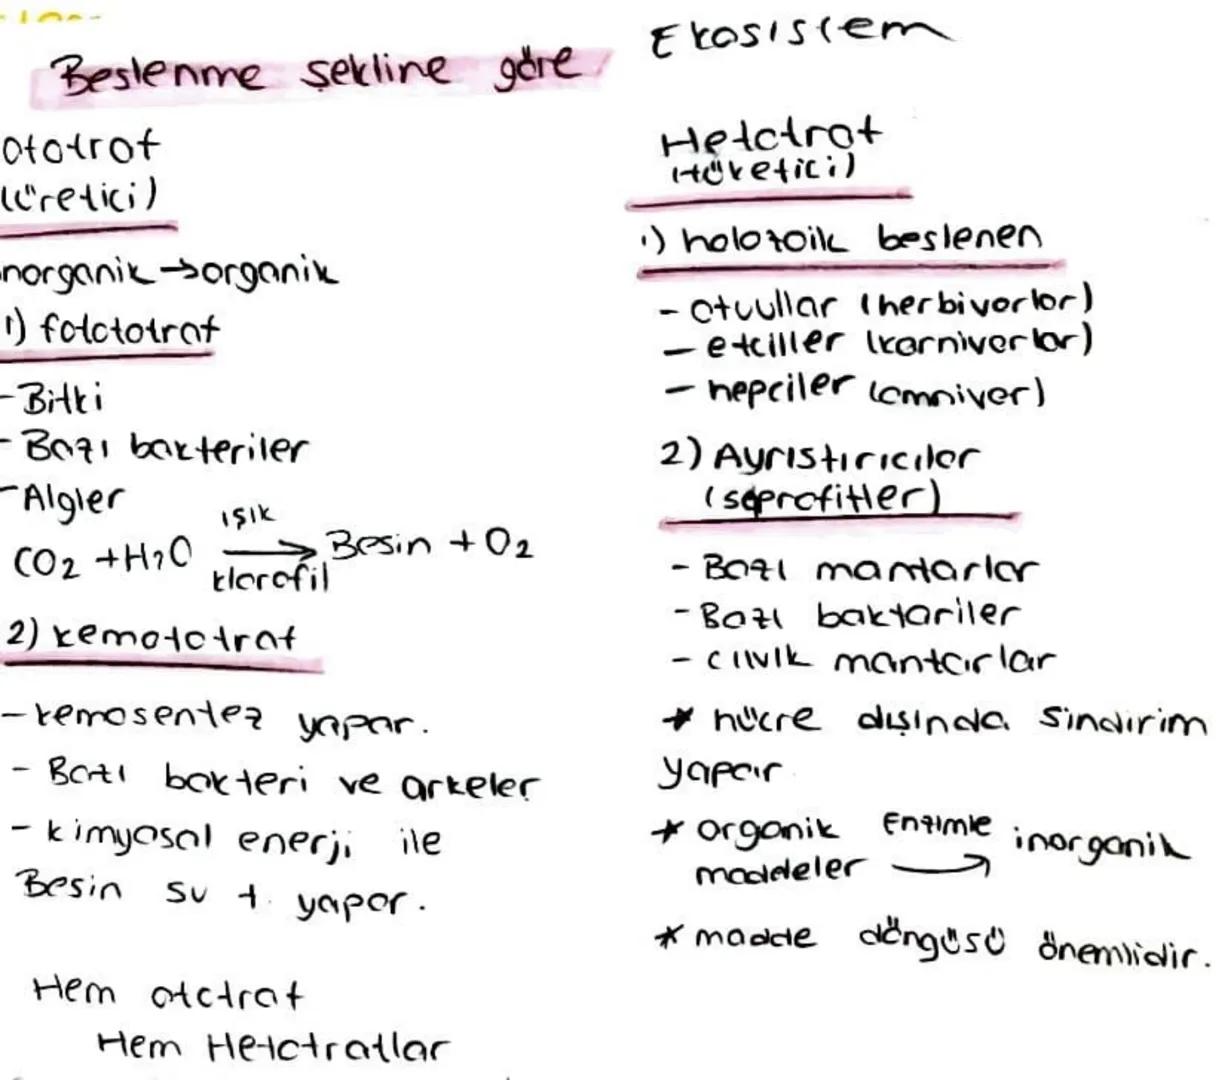 Ekosistem
Beslenme şekline göre
ototrof
(üretici)
inorganik → organik
1) fototrof
- Bitki
- Bazı bakteriler
- Algler
CO2 + H2O ışık → klorofil Besin + O2
2) kemototrof
- kemosentez yapar.
- Bazı bakteri ve arkeler
- kimyasal enerji ile
Besin su +. yapar.
Hem ototrof
Hem Hetotroflar
Hetotrof
(tüketici)
1) holozoik beslenen
- otçullar (herbivorlar)
- etciller (karnivorlar)
- hepciler (omnivor)
2) Ayrıştırıcılar
(saprofitler)
- Bazı mantarlar
- Bazı baktariler
- cıvık mantarlar
* hücre dışında sindirim
yapar
* organik Enzimle inorganik
maddeler →
* madde döngüsü önemlidir.